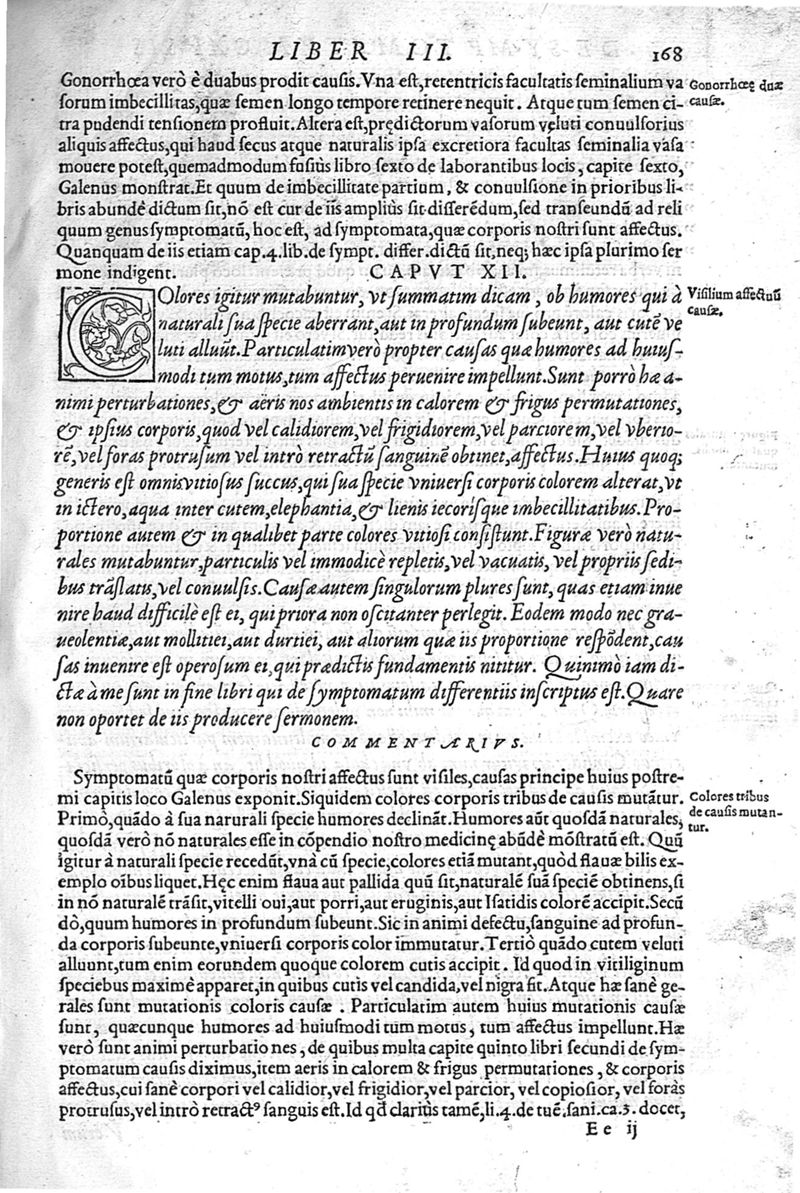 LIBER III. 168
Gonorrhœa verò è duabus prodit causis. Vna est, retentricis facultatis seminalium va
Gonorrhœę duæ
causæ.
sorum imbecillitas, quæ semen longo tempore retinere nequit. Atque tum semen ci-
tra pudendi tensionem profluit. Altera est, prędictorum vasorum veluti conuulsorius
aliquis affectus, qui haud secus atque naturalis ipsa excretiora facultas seminalia vasa
mouere potest, quemadmodum fusiùs libro sexto de laborantibus locis, capite sexto,
Galenus monstrat. Et quum de imbecillitate partium, & conuulsione in prioribus li-
bris abundè dictum sit, nō est cur de iis ampliùs sit differēdum, sed transeundū ad reli
quum genus symptomatū, hoc est, ad symptomata, quæ corporis nostri sunt affectus.
Quanquam de iis etiam cap. 4. lib. de sympt. differ. dictū sit, neq; hæc ipsa plurimo ser
mone indigent. CAPVT XII.
Colores igitur mutabuntur, vt summatim dicam, ob humores qui à
Visilium affectuū
causæ.
naturali sua specie aberrant, aut in profundum subeunt, aut cutē ve
luti alluūt. Particulatim verò propter causas quæ humores ad huius-
modi tum motus, tum affectus peruenire impellunt. Sunt porrò hæ a-
nimi perturbationes, & aëris nos ambientis in calorem & frigus permutationes,
& ipsius corporis, quod vel calidiorem, vel frigidiorem, vel parciorem, vel vberio-
rē, vel foras protrusum vel intrò retractū sanguinē obtinet, affectus. Huius quoq;
generis est omnis vitiosus succus, qui sua specie vniuersi corporis colorem alterat, vt
in ictero, aqua inter cutem, elephantia, & lienis iecorisque imbecillitatibus. Pro-
portione autem & in qualibet parte colores vitiosi consistunt. Figuræ verò natu-
rales mutabuntur, particulis vel immodicè repletis, vel vacuatis, vel propriis sedi-
bus trāslatis, vel conuulsis. Causæ autem singulorum plures sunt, quas etiam inue
nire haud difficilè est ei, qui priora non oscitanter perlegit. Eodem modo nec gra-
ueolentiæ, aut mollitiei, aut duritiei, aut aliorum quæ iis proportione respōdent, cau
sas inuenire est operosum ei, qui prædictis fundamentis nititur. Quinimò iam di-
ctæ à me sunt in fine libri qui de symptomatum differentiis inscriptus est. Quare
non oportet de iis producere sermonem.
COMMENTARIVS.
Symptomatū quæ corporis nostri affectus sunt visiles, causas principe huius postre-
mi capitis loco Galenus exponit. Siquidem colores corporis tribus de causis mutātur.
Colores tribus
de causis mutan-
tur.
Primò, quādo à sua narurali specie humores declināt. Humores aūt quosdā naturales,
quosdā verò nō naturales esse in cōpendio nostro medicinę abūdè mōstratū est. Quū
igitur à naturali specie recedūt, vnà cū specie, colores etiā mutant, quòd flauæ bilis ex-
emplo oībus liquet. Hęc enim flaua aut pallida quū sit, naturalē suā speciē obtinens, si
in nō naturalē trāsit, vitelli oui, aut porri, aut eruginis, aut Isatidis colorē accipit. Secū
dò, quum humores in profundum subeunt. Sic in animi defectu, sanguine ad profun-
da corporis subeunte, vniuersi corporis color immutatur. Tertiò quādo cutem veluti
alluunt, tum enim eorundem quoque colorem cutis accipit. Id quod in vitiliginum
speciebus maximè apparet, in quibus cutis vel candida, vel nigra fit. Atque hæ sanè ge-
rales sunt mutationis coloris causæ. Particulatim autem huius mutationis causæ
sunt, quæcunque humores ad huiusmodi tum motus, tum affectus impellunt. Hæ
verò sunt animi perturbationes, de quibus multa capite quinto libri secundi de sym-
ptomatum causis diximus, item aeris in calorem & frigus permutationes, & corporis
affectus, cui sanè corpori vel calidior, vel frigidior, vel parcior, vel copiosior, vel foràs
protrusus, vel intrò retractꝰ sanguis est. Id qđ clariùs tamē, li. 4. de tuē. sani. ca. 3. docet,
Ee ij